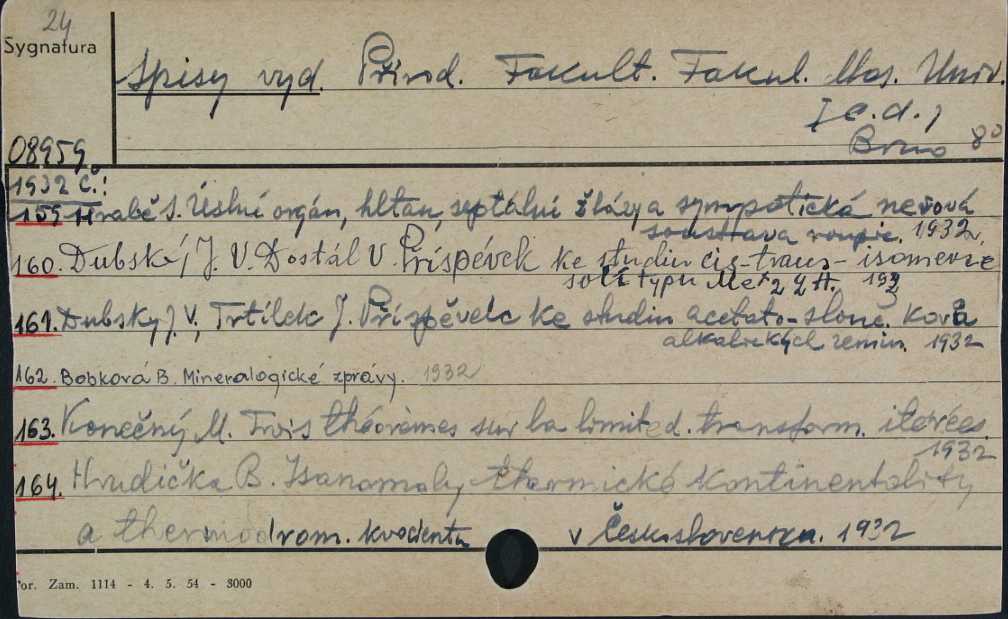 24
Sygnatura
Spisy vyd. Přírod. Fakult. Fakul. Mas. Univ.
[c.d.]
08959 Brno 8°
1932 č.:
159 Hrabě S. Ústní orgán, hltan, septální žlázy a sympatická nervová
soustava roupic. 1932.
160. Dubský, J. V. Dostál V. Príspévek ke studiu cis-trans-isomerie
solí typu 193
161. Dubsky J. V., Trtílek J. Příspěvek ke studiu acetato-sloně. kovů
alkalických zemin. 1932
162. Bobková B. Mineralogické zprávy. 1932
163. Konečný M. Trois théorèmes sur la limite d. transform. iterées.
1932
164. Hrudička B. Isanomaly thermické kontinentality
a thermodrom. kvocientu v Československu. 1932
or. Zam. 1114 - 4. 5. 54 - 3000